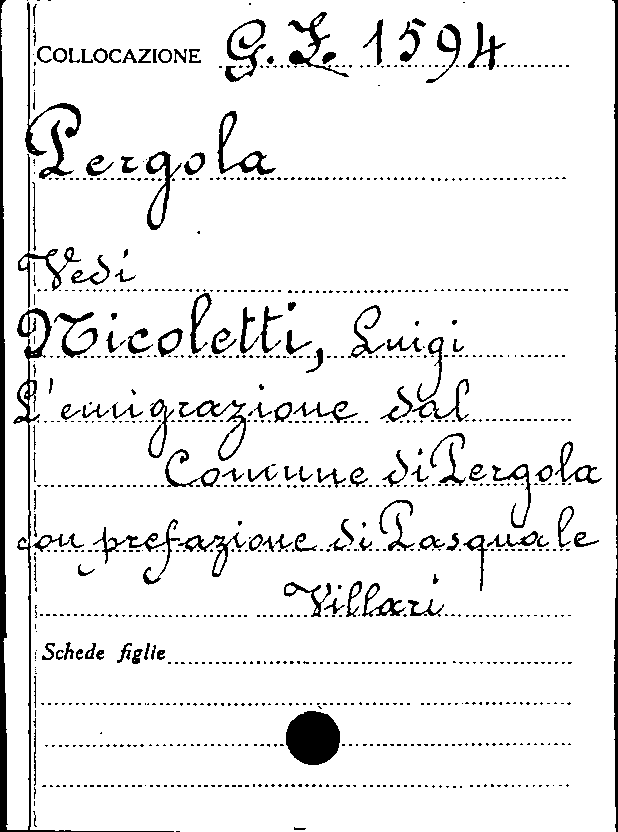 COLLOCAZIONE G. F. 1594
Pergola
Vedi
Nicoletti, Luigi
L'emigrazione dal
Comune di Pergola
con prefazione di Pasquale
Villari
Schede figlie